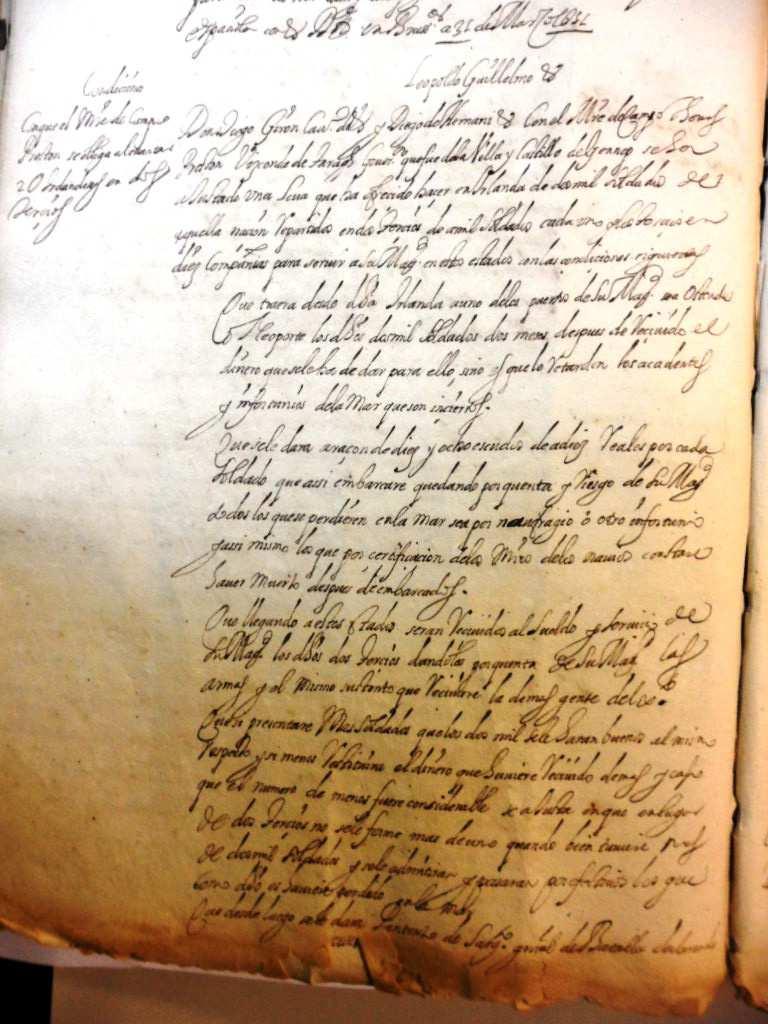 español con 8 D.e en Brus.as a 31 de Março 1651
Leopoldo Guillelmo &
Condiciones
Con que el Mre de Campo
Preston se obliga a traer
20 Irlandeses en dos
tercios
Don Diego Giron Cav.o de & y Diego de Hernani & Con el Mre de Campo Thomas
Preston Vizconde de Tarda Gover.or que fue de la Villa y Castillo de Genap se ha
ajustado una Leva que ha ofrecido hacer en Irlanda de dos mil soldados de
aquella nación Repartidos en dos tercios de a mil soldados cada uno
diez Compañias para servir a Su Mag.d en estos estados con las condiciones siguientes
Que traera desde dha Irlanda a uno de los puertos de Su Mag.d sea Ostende
o Nieoporte los dhos dos mil soldados dos meses despues de Reciuido el
dinero que se le ha de dar para ello, sino es que lo Retarden los acadentes
y infortunios de la Mar que son inciertos.
Que se le dara a raçon de diez y ocho escudos de a diez Reales por cada
soldado que assi embarcare quedando por quenta y Riesgo de Su Mag.d
todos los que se perdieren en la mar sea por naufragio o otro infortunio
y assi mismo los que por certificacion de los Mros de los navios constare
hauer Muerto despues de embarcados.
Que llegando a estos estados seran Reciuidos al sueldo y seruicio de
Su Mag.d los dhos dos tercios dandoles por quenta de Su Mag.d las
armas y el mismo sustento que Reciuiere la demas gente de los.
Que si presentare Mas soldados que los dos mil se le haran buenos al mismo
Respecto y si menos Restituira el dinero que huuiere Reciuido demas y caso
que el numero de menos fuere considerable se ajusta en que en lugar
de dos tercios no se le forme mas de uno quando bien tuuiere
de dos mil soldados y se le admitiran y passaran por efectivos los que
como dho es se huuieren perdido en la mar
Que desde luego se le dara Patente de Sarg.to gnral de Batalla